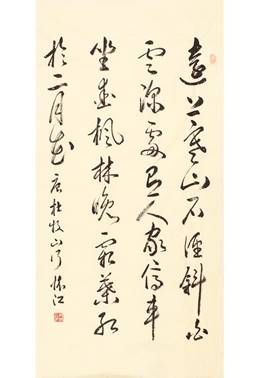 遠上寒山石徑斜白
云深處有人家停車
坐愛楓林晚霜葉紅
於二月花 唐杜牧山行